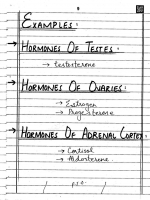 EXAMPLES:
→ HORMONES OF TESTES:
→ testosterone
→ HORMONES OF OVARIES:
→ Estrogen
→ Progesterone
→ HORMONES OF ADRENAL CORTEX:
→ Cortisol
→ Aldosterone.